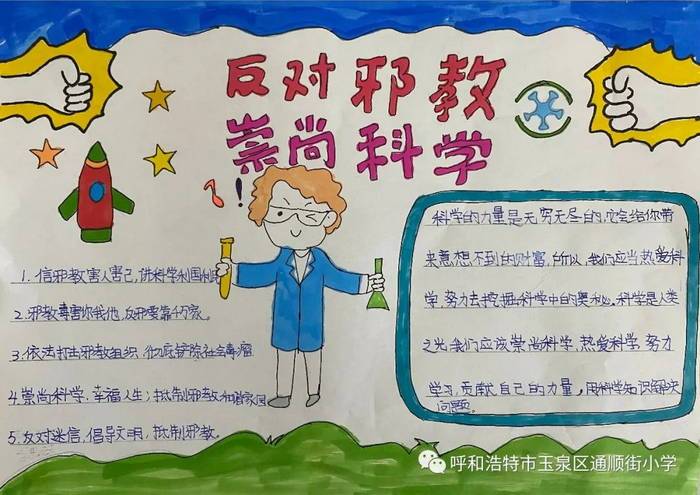 反对邪教
崇尚科学
1.信邪教害人害己,讲科学利国利民
2.邪教毒害你我他,反邪要靠千万家。
3.依法打击邪教组织,彻底铲除社会毒瘤
4.崇尚科学,幸福人生;抵制邪教,和谐家园
5.反对迷信,倡导文明,抵制邪教。
科学的力量是无穷无尽的,它会给你带
来意想不到的财富,所以,我们应当热爱科
学,努力去挖掘科学中的奥秘。科学是人类
之光我们应该崇尚科学,热爱科学,努力
学习,贡献自己的力量,用科学知识解决
问题。
呼和浩特市玉泉区通顺街小学